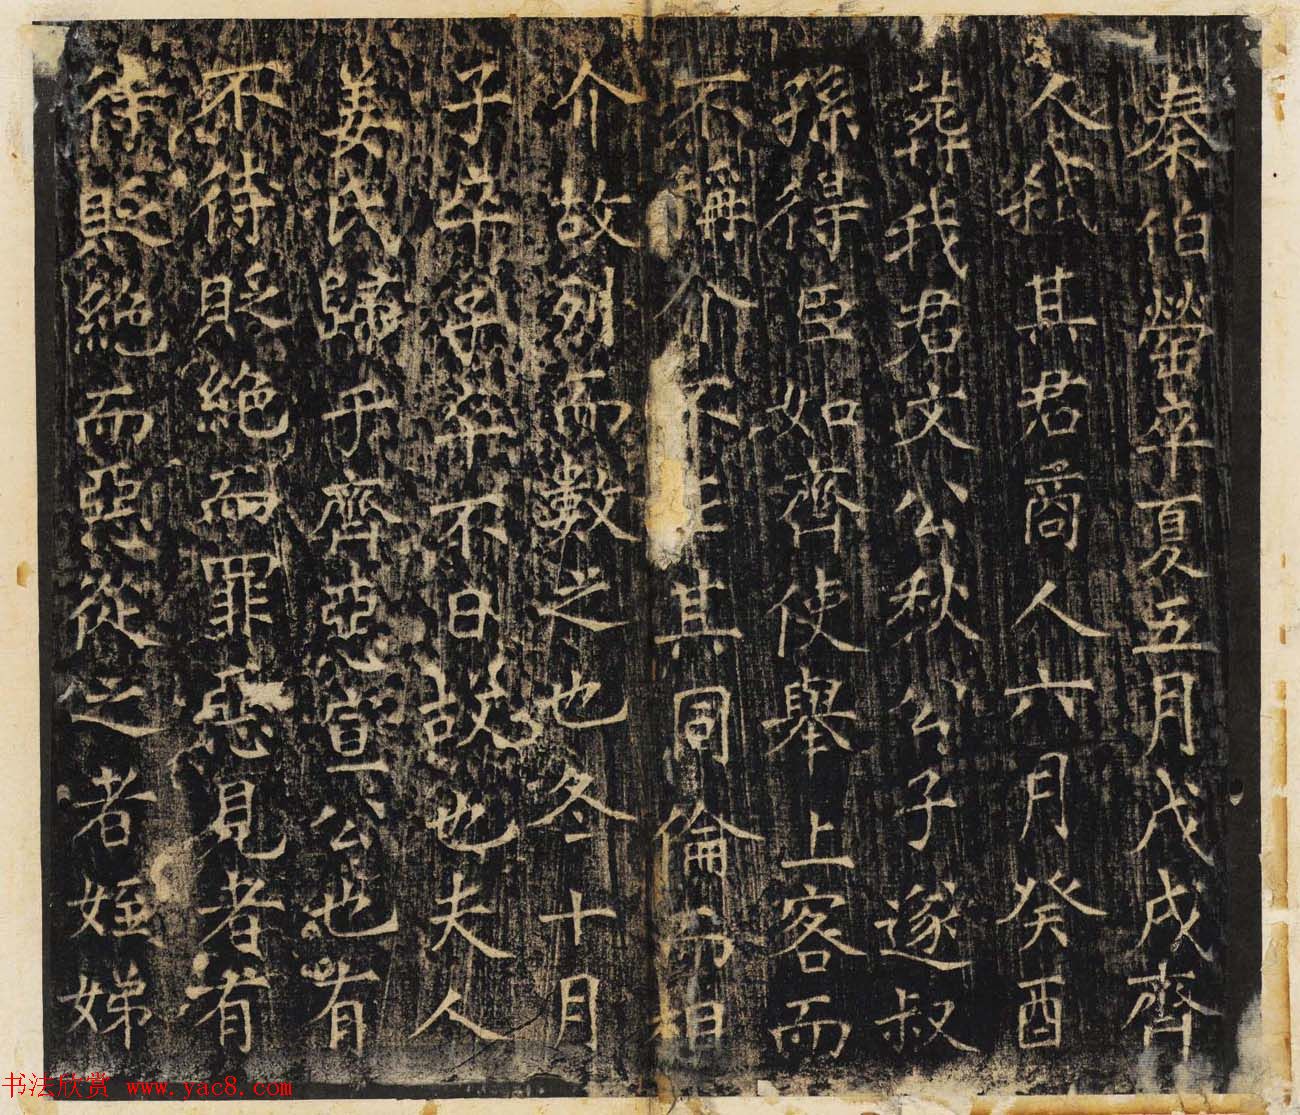 秦伯罃卒夏五月戊戌齊
人弑其君商人六月癸酉
葬我君文公秋公子遂叔
孫得臣如齊使舉上客而
不稱介不正其同倫而相
介故列而數之也冬十月
子卒子卒不日故也夫人
姜氏歸乎齊惡宣公也有
不待貶絕而罪惡見者有
待貶絕而惡從之者姪娣
书法欣赏 www.yac8.com